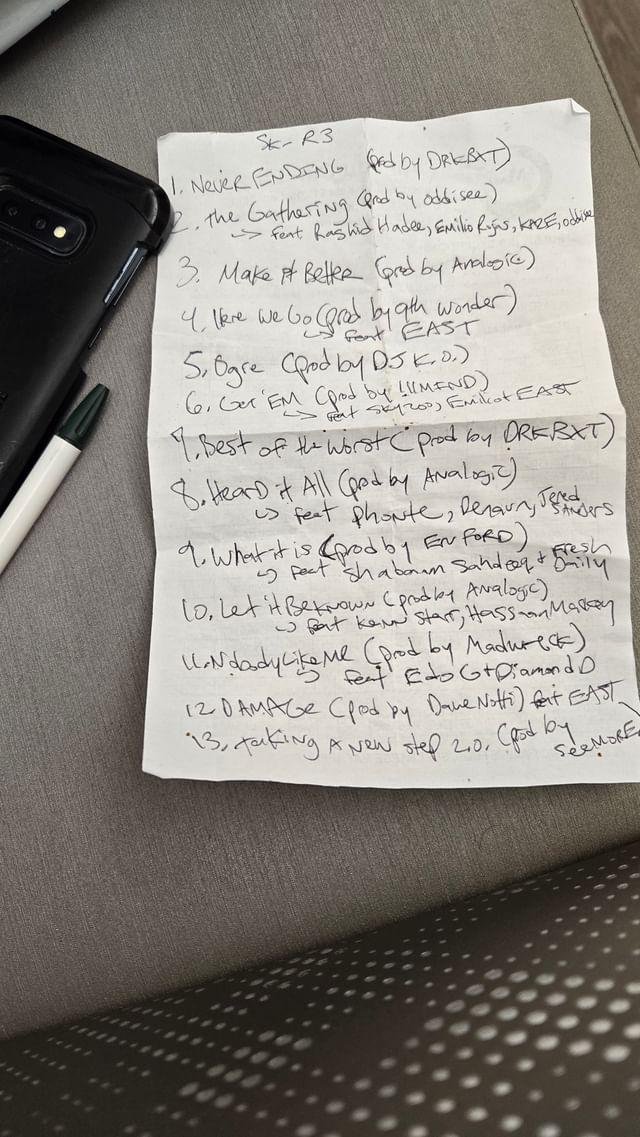 SK- R3
1. Never ENDING (prod by DRKBXT)
2. the Gathering (prod by oddisee)
→ feat Rashid Hadee, Emilio Rojas, KAZE, oddisee
3. Make it Better (prod by Analogic)
4. Here We Go (prod by 9th wonder)
→ feat EAST
5. Ogre (prod by DJ K.O.)
6. Get 'EM (prod by !llMIND)
→ feat Skyzoo, Emilio + EAST
7. Best of the Worst (prod by DRKBXT)
8. HearD it All (prod by Analogic)
→ feat Phonte, Denaun, Jered Sanders
9. What it is (prod by EN FORD)
→ feat Shabaam Sahdeeq + Fresh Daily
10. Let it Be Known (prod by Analogic)
→ feat Kenn Starr, Hassaan Mackey
11. Nobody Like Me (prod by Madwreck)
→ feat Edo G + Diamond D
12 DAMAGE (prod by Dave Notti) feat EAST
13. taking A New step 2.0. (prod by
SeeMORE)